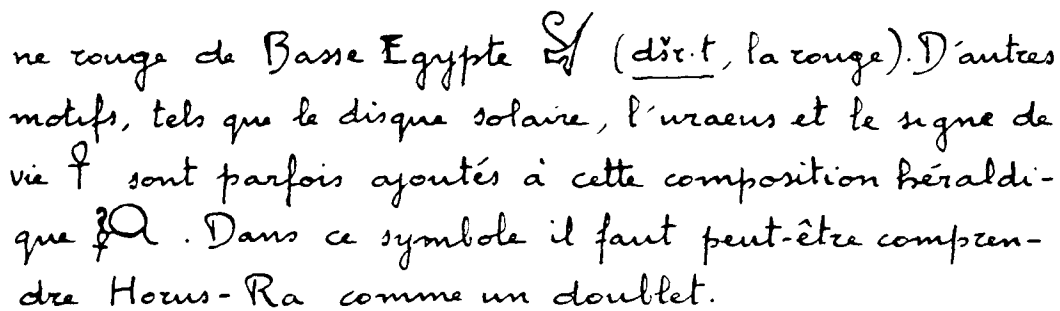 ne rouge de Basse Egypte 𓋔 (dšr.t, la rouge). D'autres
motifs, tels que le disque solaire, l'uraeus et le signe de
vie 𓋹 sont parfois ajoutés à cette composition héraldi-
que. Dans ce symbole il faut peut-être compren-
dre Horus-Ra comme un doublet.